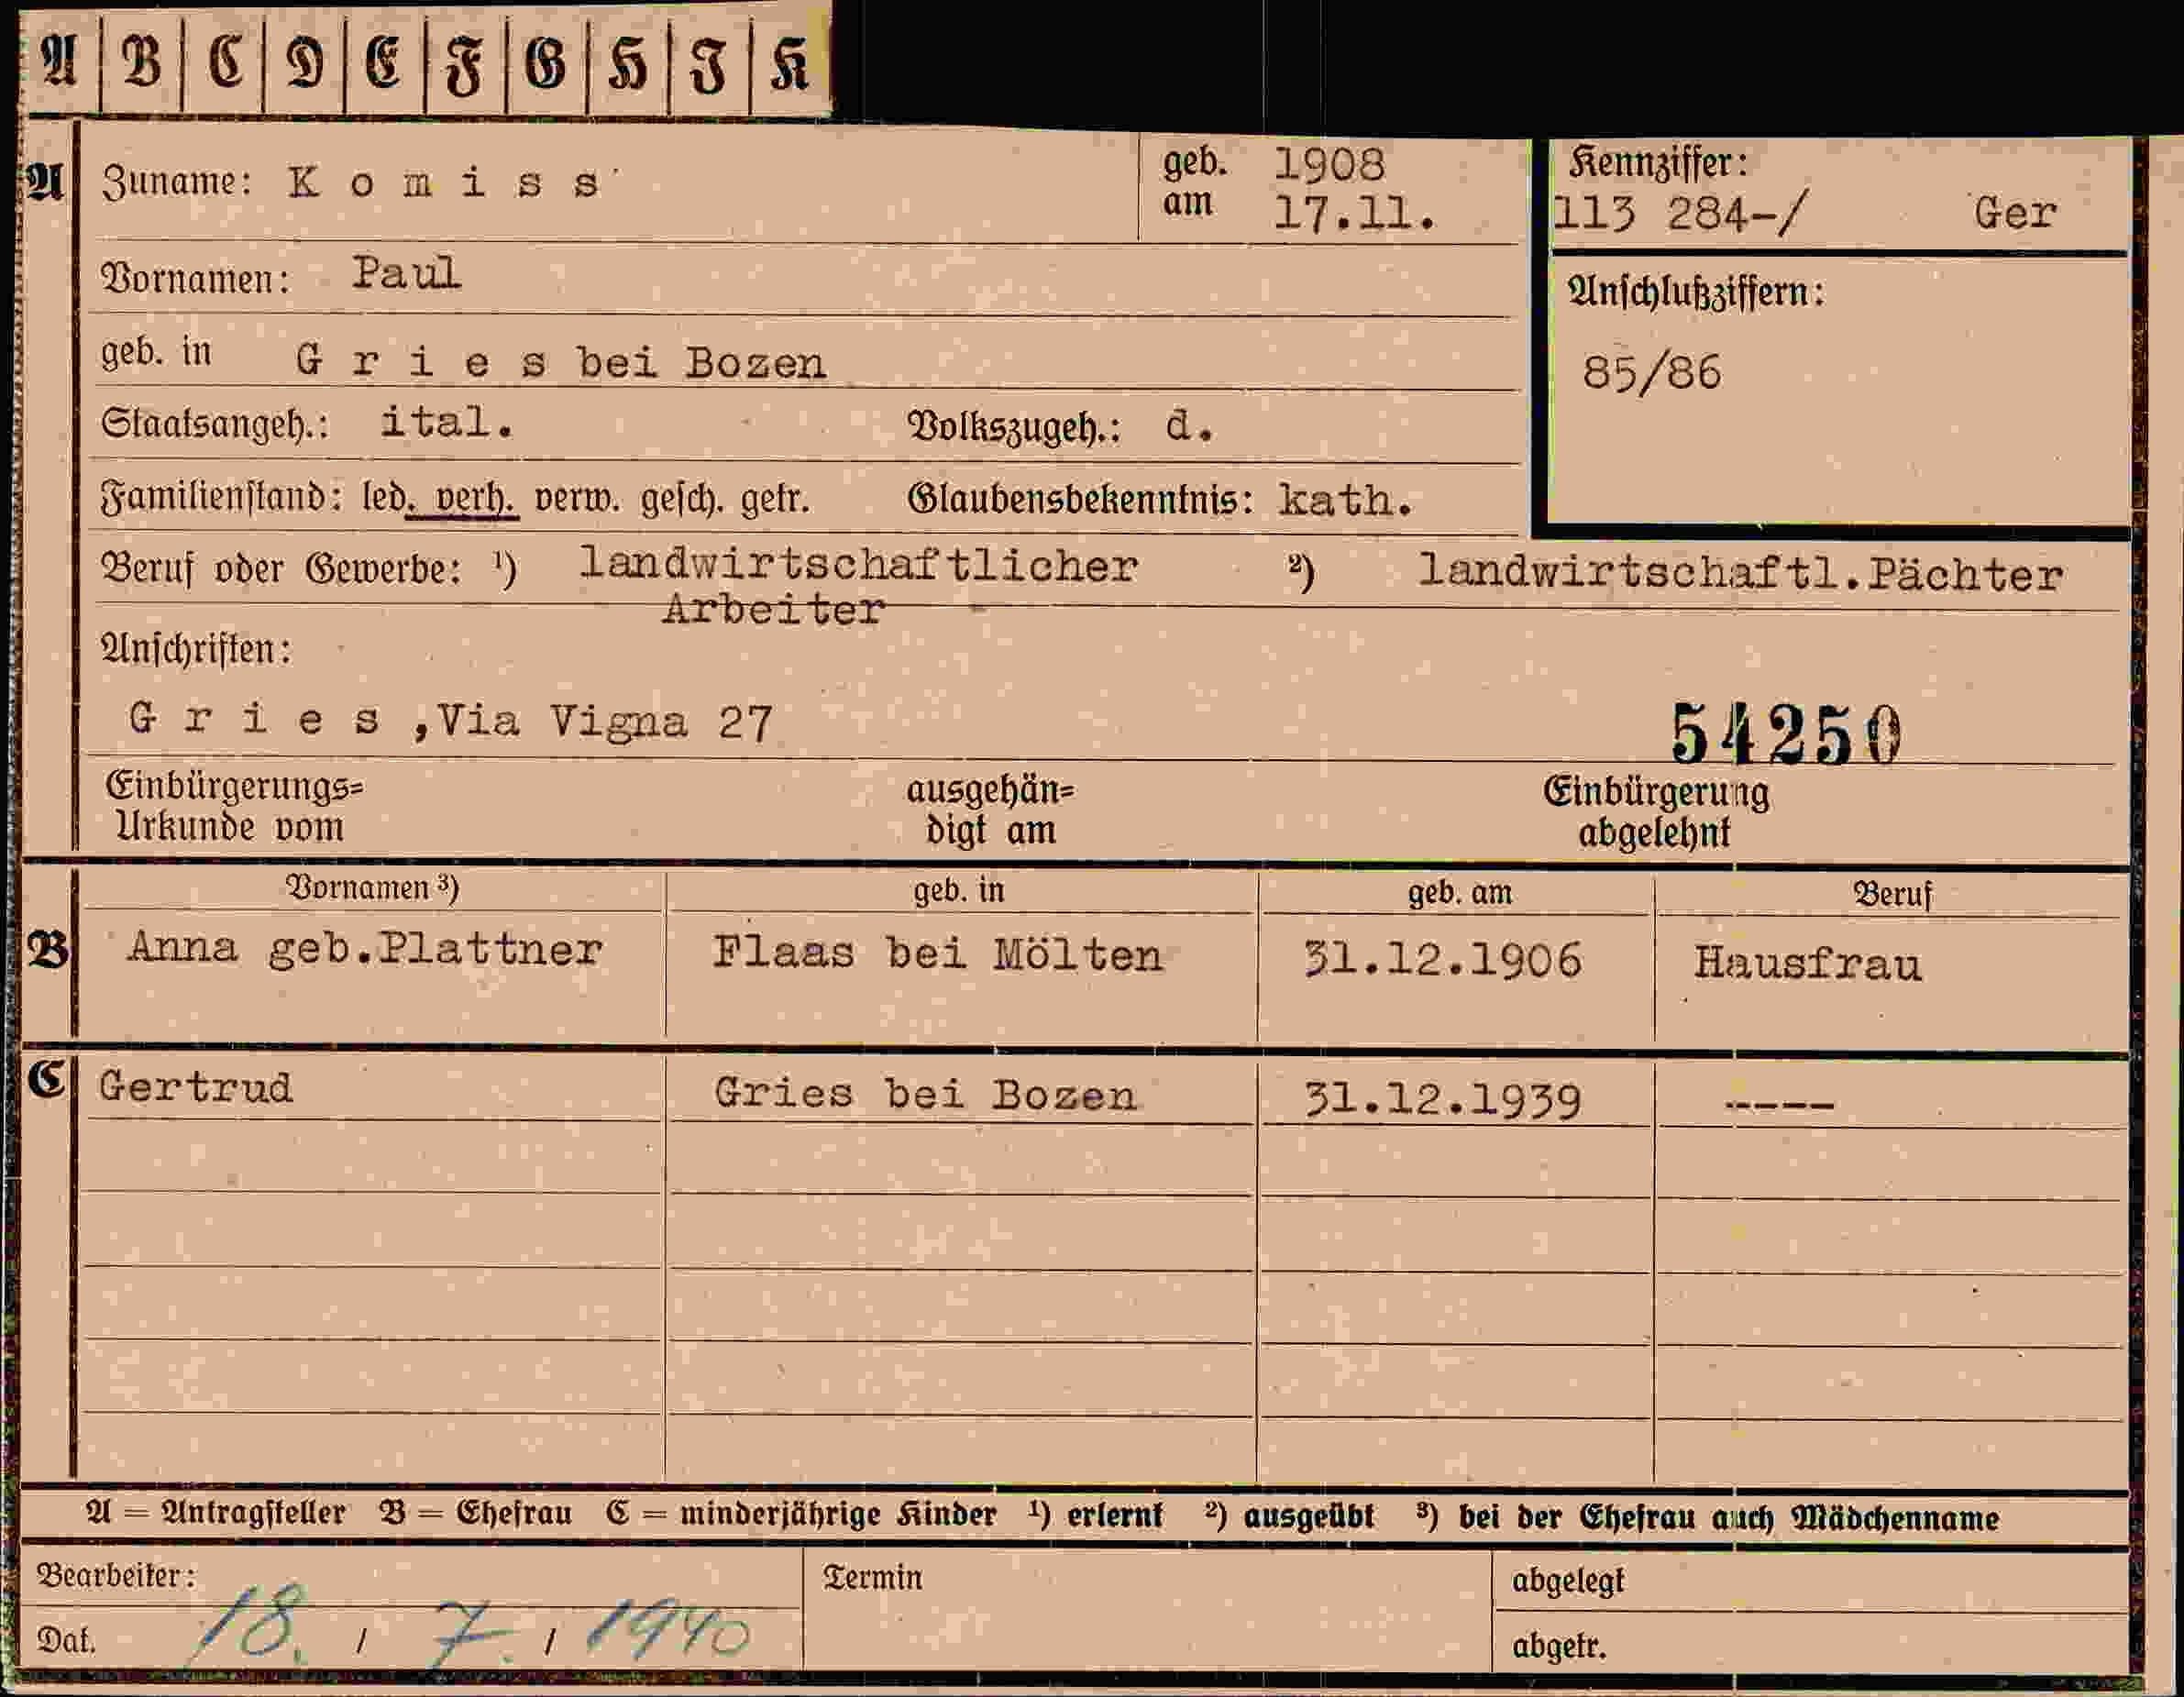 A B C D E F G H I K
A Zuname: K o m i s s geb. am 1908 17.11. Kennziffer: 113 284-/ Ger
Vornamen: Paul
Anschlußziffern:
geb. in G r i e s bei Bozen
85/86
Staatsangeh.: ital. Volkszugeh.: d.
Familienstand: led. verh. verw. gesch. getr. Glaubensbekenntnis: kath.
Beruf oder Gewerbe: ¹) landwirtschaftlicher ²) landwirtschaftl.Pächter
Arbeiter
Anschriften:
G r i e s ,Via Vigna 27 54250
Einbürgerungs= ausgehän= Einbürgerung
Urkunde vom digt am abgelehnt
Vornamen ³) geb. in geb. am Beruf
B Anna geb.Plattner Flaas bei Mölten 31.12.1906 Hausfrau
C Gertrud Gries bei Bozen 31.12.1939 -----
A = Antragsteller B = Ehefrau C = minderjährige Kinder ¹) erlernt ²) ausgeübt ³) bei der Ehefrau auch Mädchenname
Bearbeiter: Termin abgelegt
Dat. 18. / 7. / 1940 abgetr.